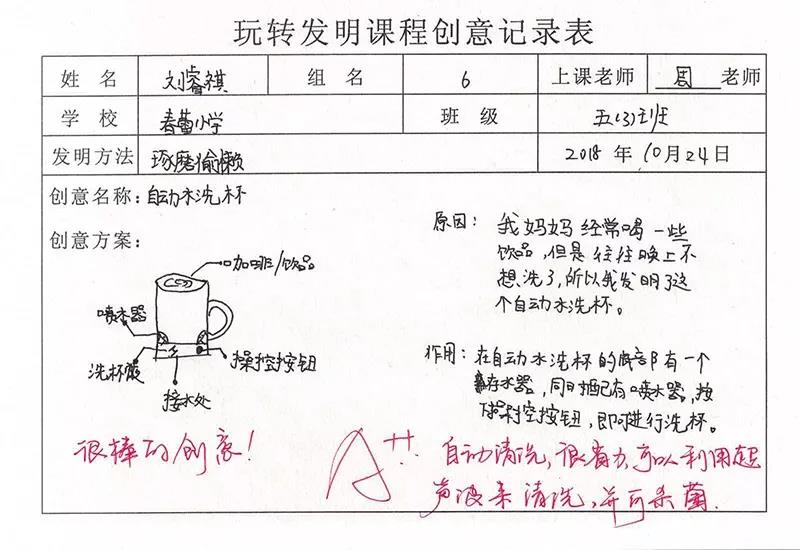 玩转发明课程创意记录表
姓 名 刘睿祺 组 名 6 上课老师 周 老师
学 校 春蕾小学 班 级 五(3)班
发明方法 琢磨偷懒 2018 年 10月24日
创意名称：自动水洗杯
创意方案：
咖啡/饮品
喷水器
洗杯液
接水处
操控按钮
原因： 我妈妈经常喝一些
饮品，但是往往晚上不
想洗了，所以我发明了这
个自动水洗杯。
作用：在自动水洗杯的底部有一个
存水器，同时配有喷水器，按
操控按钮，即可进行洗杯。
很棒的创意！
A++
自动清洗，很省力，可以利用超
声波来清洗，并可杀菌.